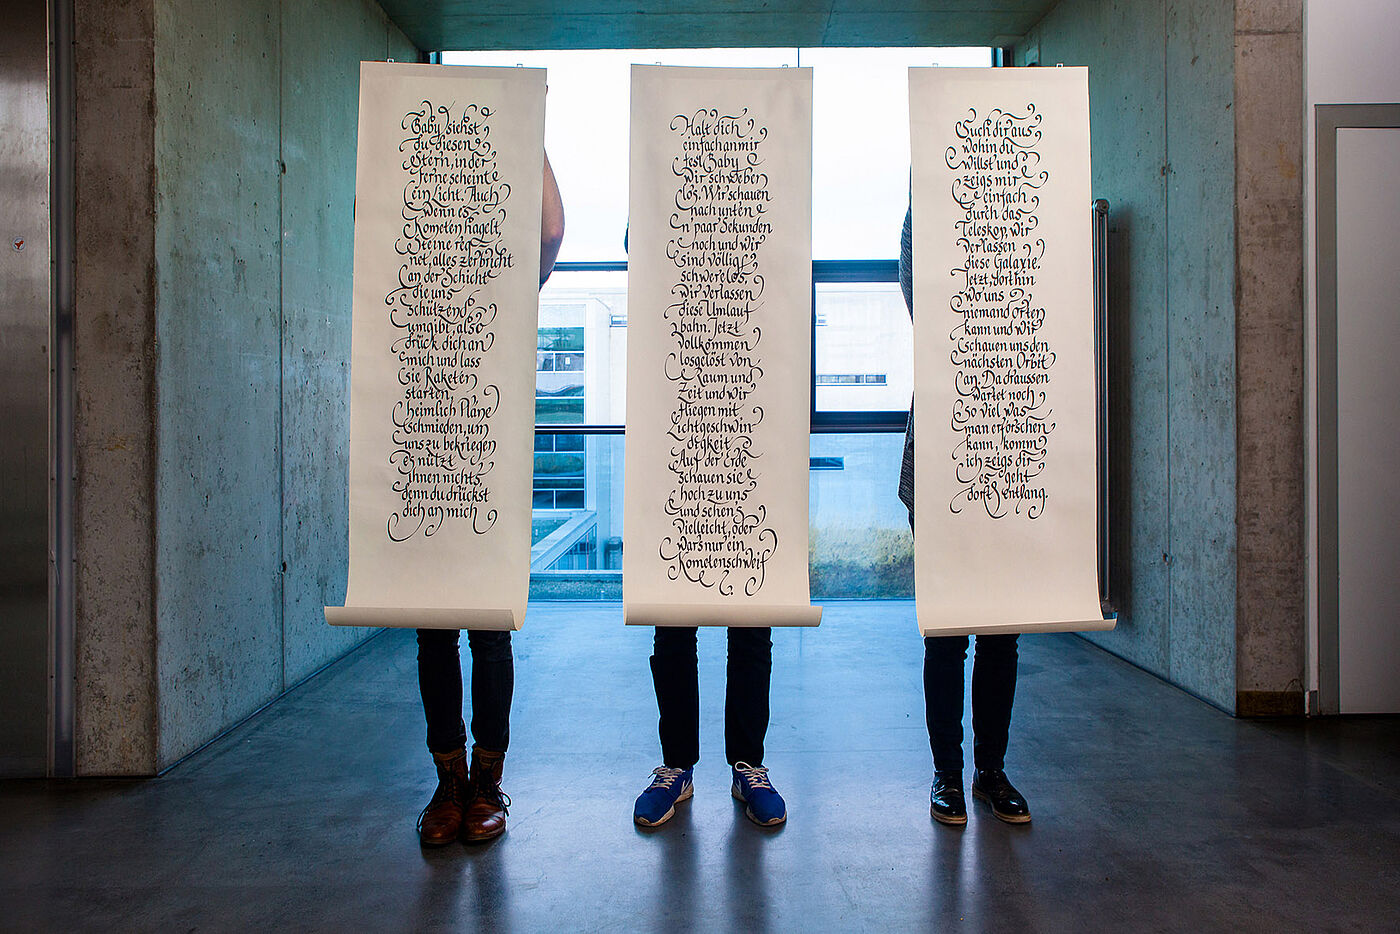 Baby, siehst
du diesen
Stern, in der
Ferne scheint
ein Licht. Auch
wenn es
Kometen hagelt,
Steine reg-
net, alles zerbricht
an der Schicht
die uns
Schützend
umgibt, also
drück dich an
mich und lass
sie Raketen
starten,
heimlich Pläne
schmieden, um
uns zu bekriegen
es nützt
ihnen nichts,
denn du drückst
dich an mich
Halt dich
einfach an mir
fest Baby
wir schweben
los. Wir schauen
nach unten
n paar Sekunden
noch und wir
sind völlig
schwerelos,
wir verlassen
diese Umlauf
bahn. Jetzt
vollkommen
losgelöst von
Raum und
Zeit und wir
fliegen mit
Lichtgeschwin
digkeit
Auf der Erde
schauen sie
hoch zu uns
und sehen's
vielleicht, oder
wars nur ein
Kometenschweif
?
Such dir aus,
wohin du
willst und
zeigs mir
einfach
durch das
Teleskop, wir
verlassen
diese Galaxie.
Jetzt, dorthin
wo uns
niemand orten
kann und wir
schauen uns den
nächsten Orbit
an. Da draussen
wartet noch
so viel was
man erforschen
kann, komm
ich zeigs dir
es geht
dort entlang.